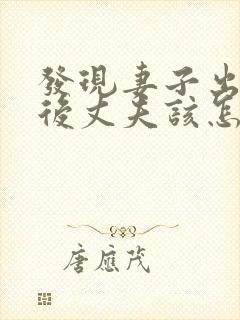 發現妻子出
後丈夫該怎
唐應茂